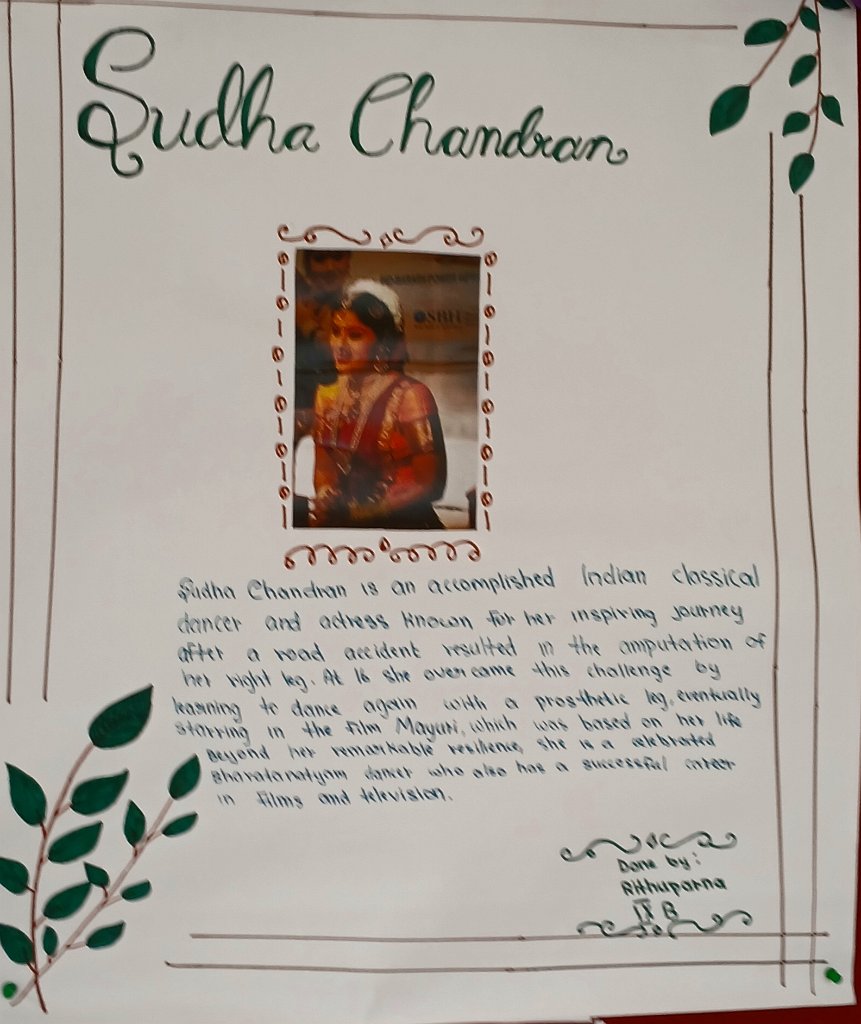 Sudha Chandran
SBH
Sudha Chandran is an accomplished Indian classical
dancer and actress known for her inspiring journey
after a road accident resulted in the amputation of
her right leg. At 16 she over came this challenge by
learning to dance again with a prosthetic leg, eventually
starring in the film Mayuri, which was based on her life
Beyond her remarkable resilience, she is a celebrated
Bharatanatyam dancer who also has a successful career
in films and television.
Done by:
Rithuparna
IX B